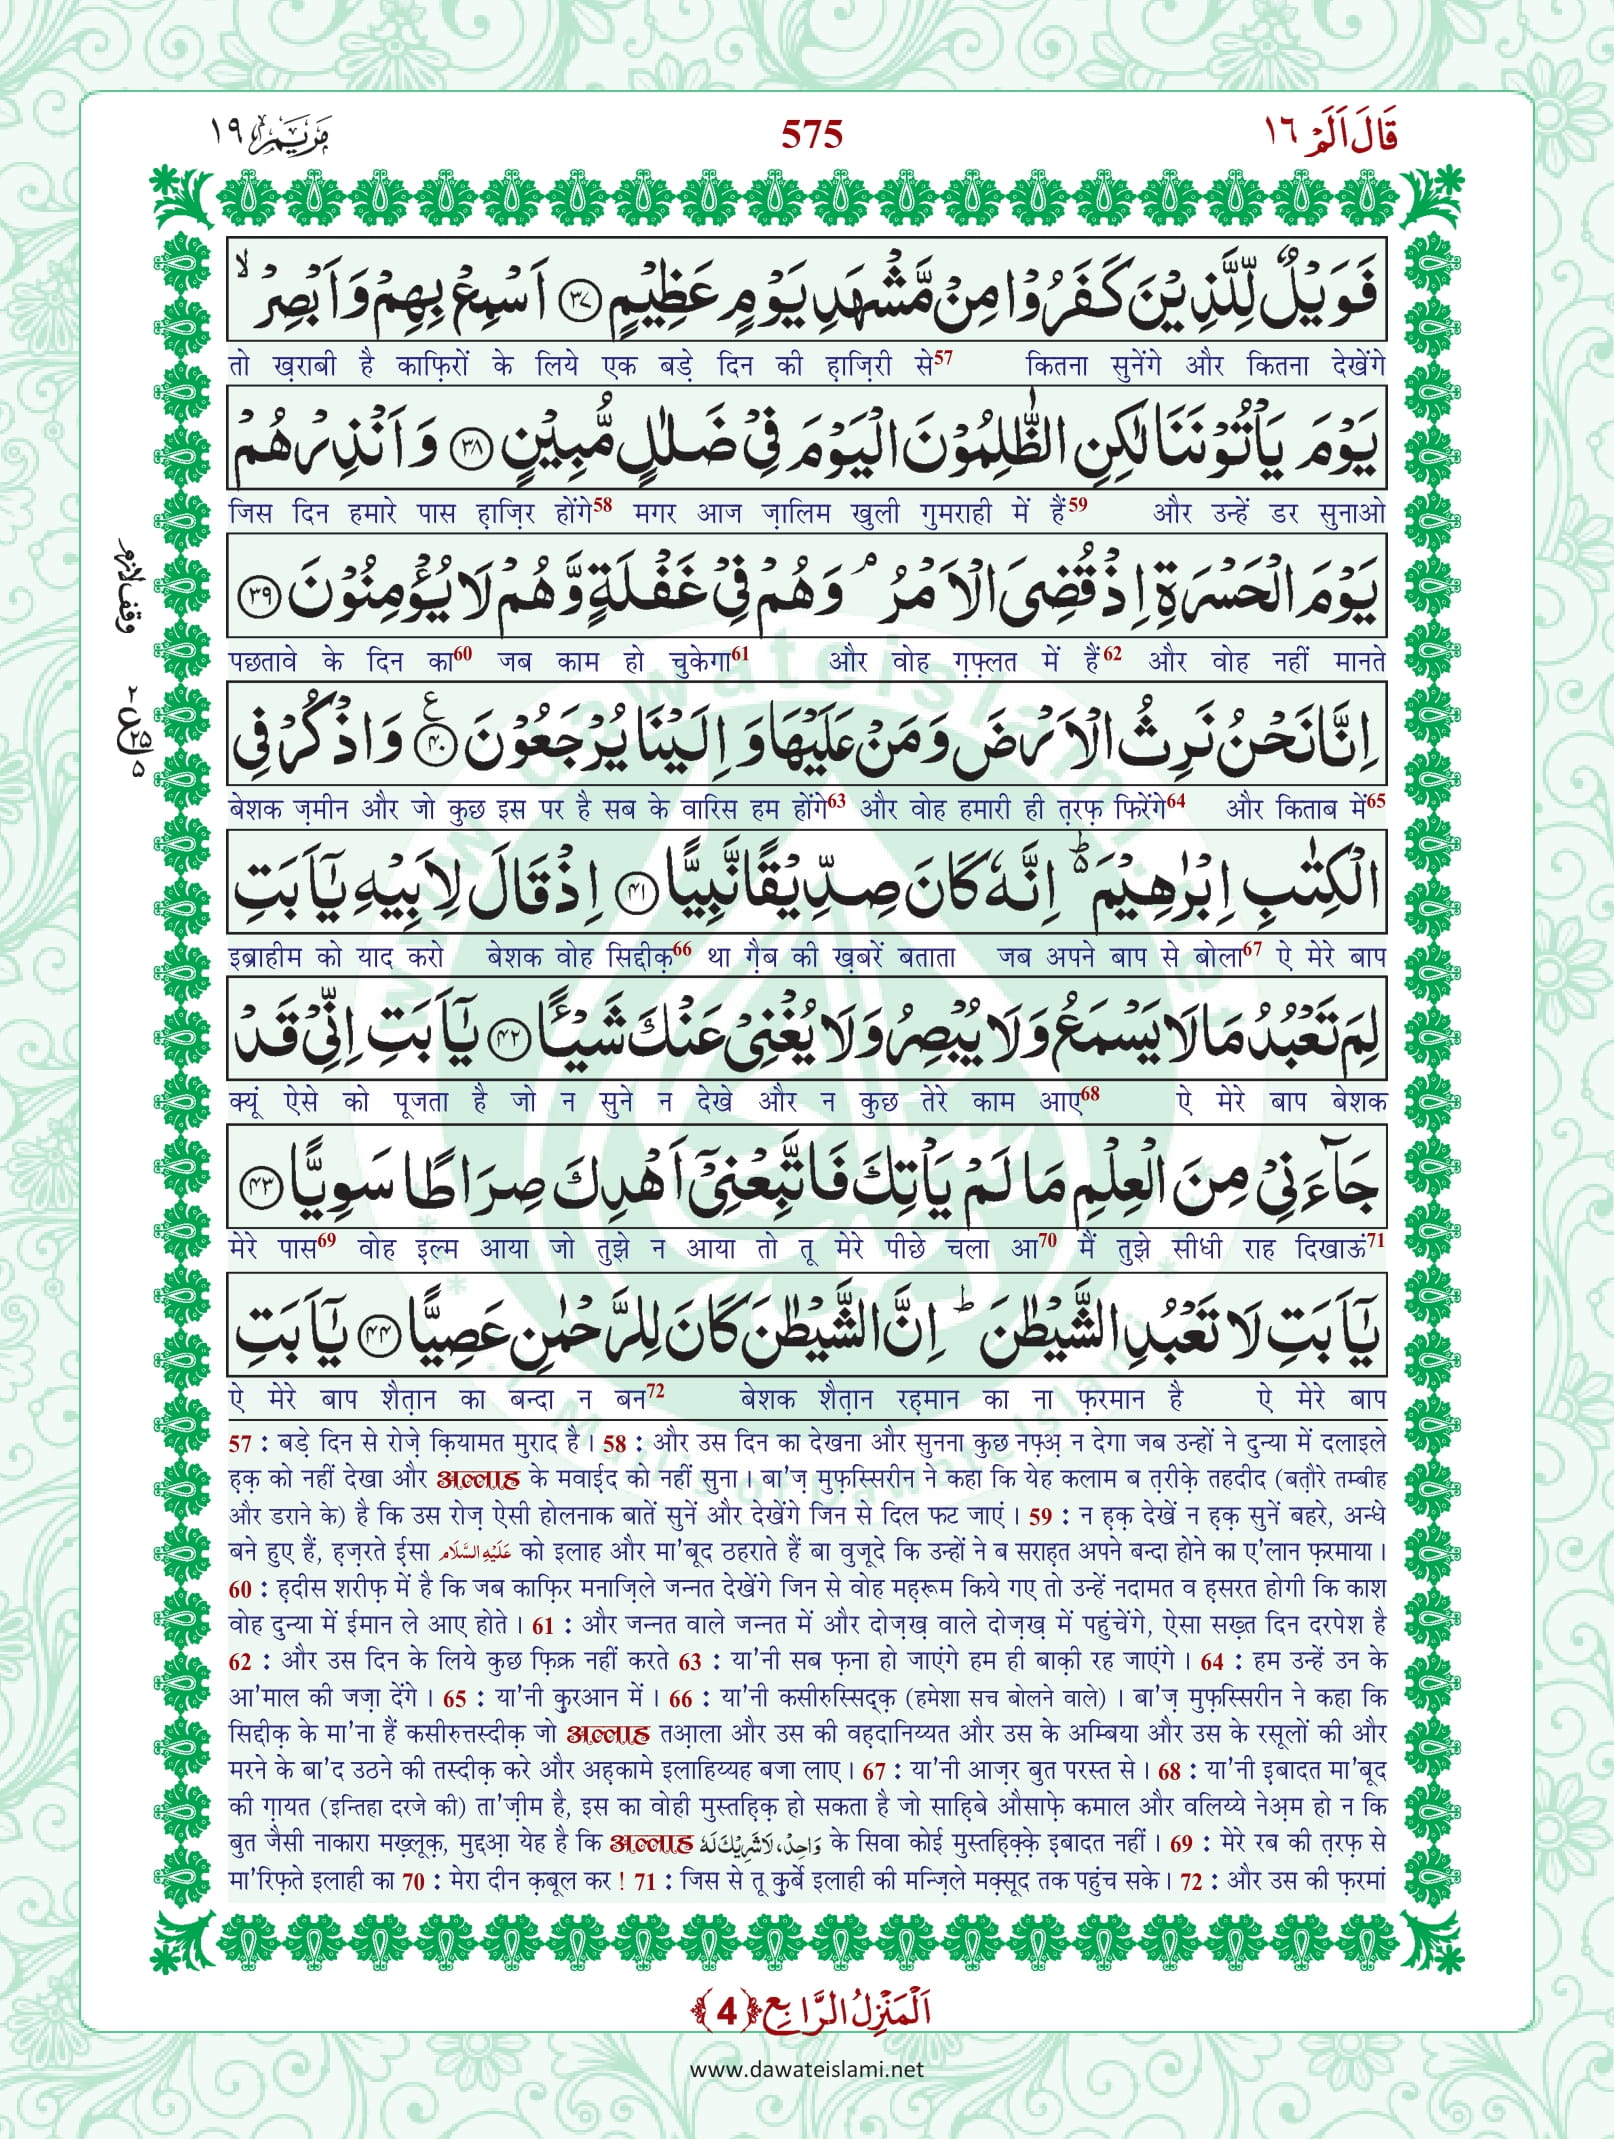 مَرْيَم ١٩
575
قَالَ اَلَمْ ١٦
فَوَيْلٌ لِّلَّذِيْنَ كَفَرُوْا مِنْ مَّشْهَدِ يَوْمٍ عَظِيْمٍ ﴿٣٧﴾ اَسْمِعْ بِهِمْ وَاَبْصِرْ ۙ
तो ख़राबी है काफ़िरों के लिये एक बड़े दिन की ह़ाज़िरी से57 कितना सुनेंगे और कितना देखेंगे
يَوْمَ يَاْتُوْنَنَا لٰكِنِ الظّٰلِمُوْنَ الْيَوْمَ فِيْ ضَلٰلٍ مُّبِيْنٍ ﴿٣٨﴾ وَاَنْذِرْهُمْ
जिस दिन हमारे पास ह़ाज़िर होंगे58 मगर आज ज़ालिम खुली गुमराही में हैं59 और उन्हें डर सुनाओ
يَوْمَ الْحَسْرَةِ اِذْ قُضِيَ الْاَمْرُ ۘ وَهُمْ فِيْ غَفْلَةٍ وَّهُمْ لَا يُؤْمِنُوْنَ ﴿٣٩﴾
وقف لازم
पछतावे के दिन का60 जब काम हो चुकेगा61 और वोह ग़फ़्लत में हैं62 और वोह नहीं मानते
اِنَّا نَحْنُ نَرِثُ الْاَرْضَ وَمَنْ عَلَيْهَا وَاِلَيْنَا يُرْجَعُوْنَ ﴿٤٠﴾ ع وَاذْكُرْ فِي
٢ ع ٢٥ ٥
बेशक ज़मीन और जो कुछ इस पर है सब के वारिस हम होंगे63 और वोह हमारी ही त़रफ़ फिरेंगे64 और किताब में65
الْكِتٰبِ اِبْرٰهِيْمَ ۬ؕ اِنَّهٗ كَانَ صِدِّيْقًا نَّبِيًّا ﴿٤١﴾ اِذْ قَالَ لِاَبِيْهِ يٰۤاَبَتِ
इब्राहीम को याद करो बेशक वोह सिद्दीक़66 था ग़ैब की ख़बरें बताता जब अपने बाप से बोला67 ऐ मेरे बाप
لِمَ تَعْبُدُ مَا لَا يَسْمَعُ وَلَا يُبْصِرُ وَلَا يُغْنِيْ عَنْكَ شَيْـًٔا ﴿٤٢﴾ يٰۤاَبَتِ اِنِّيْ قَدْ
क्यूं ऐसे को पूजता है जो न सुने न देखे और न कुछ तेरे काम आए68 ऐ मेरे बाप बेशक
جَآءَنِيْ مِنَ الْعِلْمِ مَا لَمْ يَاْتِكَ فَاتَّبِعْنِيْۤ اَهْدِكَ صِرَاطًا سَوِيًّا ﴿٤٣﴾
मेरे पास69 वोह इल्म आया जो तुझे न आया तो तू मेरे पीछे चला आ70 मैं तुझे सीधी राह दिखाऊं71
يٰۤاَبَتِ لَا تَعْبُدِ الشَّيْطٰنَ ؕ اِنَّ الشَّيْطٰنَ كَانَ لِلرَّحْمٰنِ عَصِيًّا ﴿٤٤﴾ يٰۤاَبَتِ
ऐ मेरे बाप शैत़ान का बन्दा न बन72 बेशक शैत़ान रह़मान का ना फ़रमान है ऐ मेरे बाप
57 : बड़े दिन से रोज़े क़ियामत मुराद है। 58 : और उस दिन का देखना और सुनना कुछ नफ़्अ़ न देगा जब उन्हों ने दुन्या में दलाइले
ह़क़ को नहीं देखा और अल्लाह के मवाईद को नहीं सुना। बा'ज़ मुफ़स्सिरीन ने कहा कि येह कलाम ब त़रीक़े तहदीद (बत़ौरे तम्बीह
और डराने के) है कि उस रोज़ ऐसी होलनाक बातें सुनें और देखेंगे जिन से दिल फट जाएं। 59 : न ह़क़ देखें न ह़क़ सुनें बहरे, अन्धे
बने हुए हैं, ह़ज़रते ईसा عَلَيْهِ السَّلَام को इलाह और मा'बूद ठहराते हैं बा वुजूदे कि उन्हों ने ब सराह़त अपने बन्दा होने का ए'लान फ़रमाया।
60 : ह़दीस शरीफ़ में है कि जब काफ़िर मनाज़िले जन्नत देखेंगे जिन से वोह मह़रूम किये गए तो उन्हें नदामत व ह़सरत होगी कि काश
वोह दुन्या में ईमान ले आए होते। 61 : और जन्नत वाले जन्नत में और दोज़ख़ वाले दोज़ख़ में पहुंचेंगे, ऐसा सख़्त दिन दरपेश है
62 : और उस दिन के लिये कुछ फ़िक्र नहीं करते 63 : या'नी सब फ़ना हो जाएंगे हम ही बाक़ी रह जाएंगे। 64 : हम उन्हें उन के
आ'माल की जज़ा देंगे। 65 : या'नी क़ुरआन में। 66 : या'नी कसीरुस्सिद्क़ (हमेशा सच बोलने वाले)। बा'ज़ मुफ़स्सिरीन ने कहा कि
सिद्दीक़ के मा'ना हैं कसीरुत्तस्दीक़ जो अल्लाह तआ़ला और उस की वह़दानिय्यत और उस के अम्बिया और उस के रसूलों की और
मरने के बा'द उठने की तस्दीक़ करे और अह़कामे इलाहिय्यह बजा लाए। 67 : या'नी आज़र बुत परस्त से। 68 : या'नी इबादत मा'बूद
की ग़ायत (इन्तिहा दरजे की) ता'ज़ीम है, इस का वोही मुस्तह़िक़ हो सकता है जो साह़िबे औसाफ़े कमाल और वलिय्ये नेअ़म हो न कि
बुत जैसी नाकारा मख़्लूक़, मुद्दआ़ येह है कि अल्लाह وَاحِدٌ، لَا شَرِيْكَ لَهٗ के सिवा कोई मुस्तह़िक़्क़े इबादत नहीं। 69 : मेरे रब की त़रफ़ से
मा'रिफ़ते इलाही का 70 : मेरा दीन क़बूल कर ! 71 : जिस से तू क़ुर्बे इलाही की मन्ज़िले मक़्सूद तक पहुंच सके। 72 : और उस की फ़रमां
اَلْمَنْزِلُ الرَّابِع ﴿4﴾
www.dawateislami.net